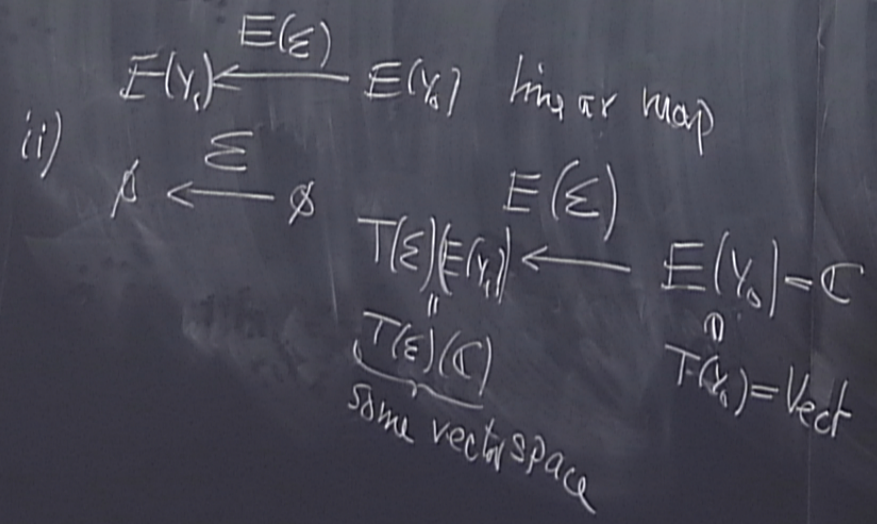 E(Σ)
E(Y₁) ← E(Y₀) linear map
ii)
Σ
∅ ← ∅
E(Σ)
T(Σ)(E(Y₁)) ← E(Y₀) = ℂ
=
T(Σ)(ℂ)
T(Y₀) = Vect
some vector space